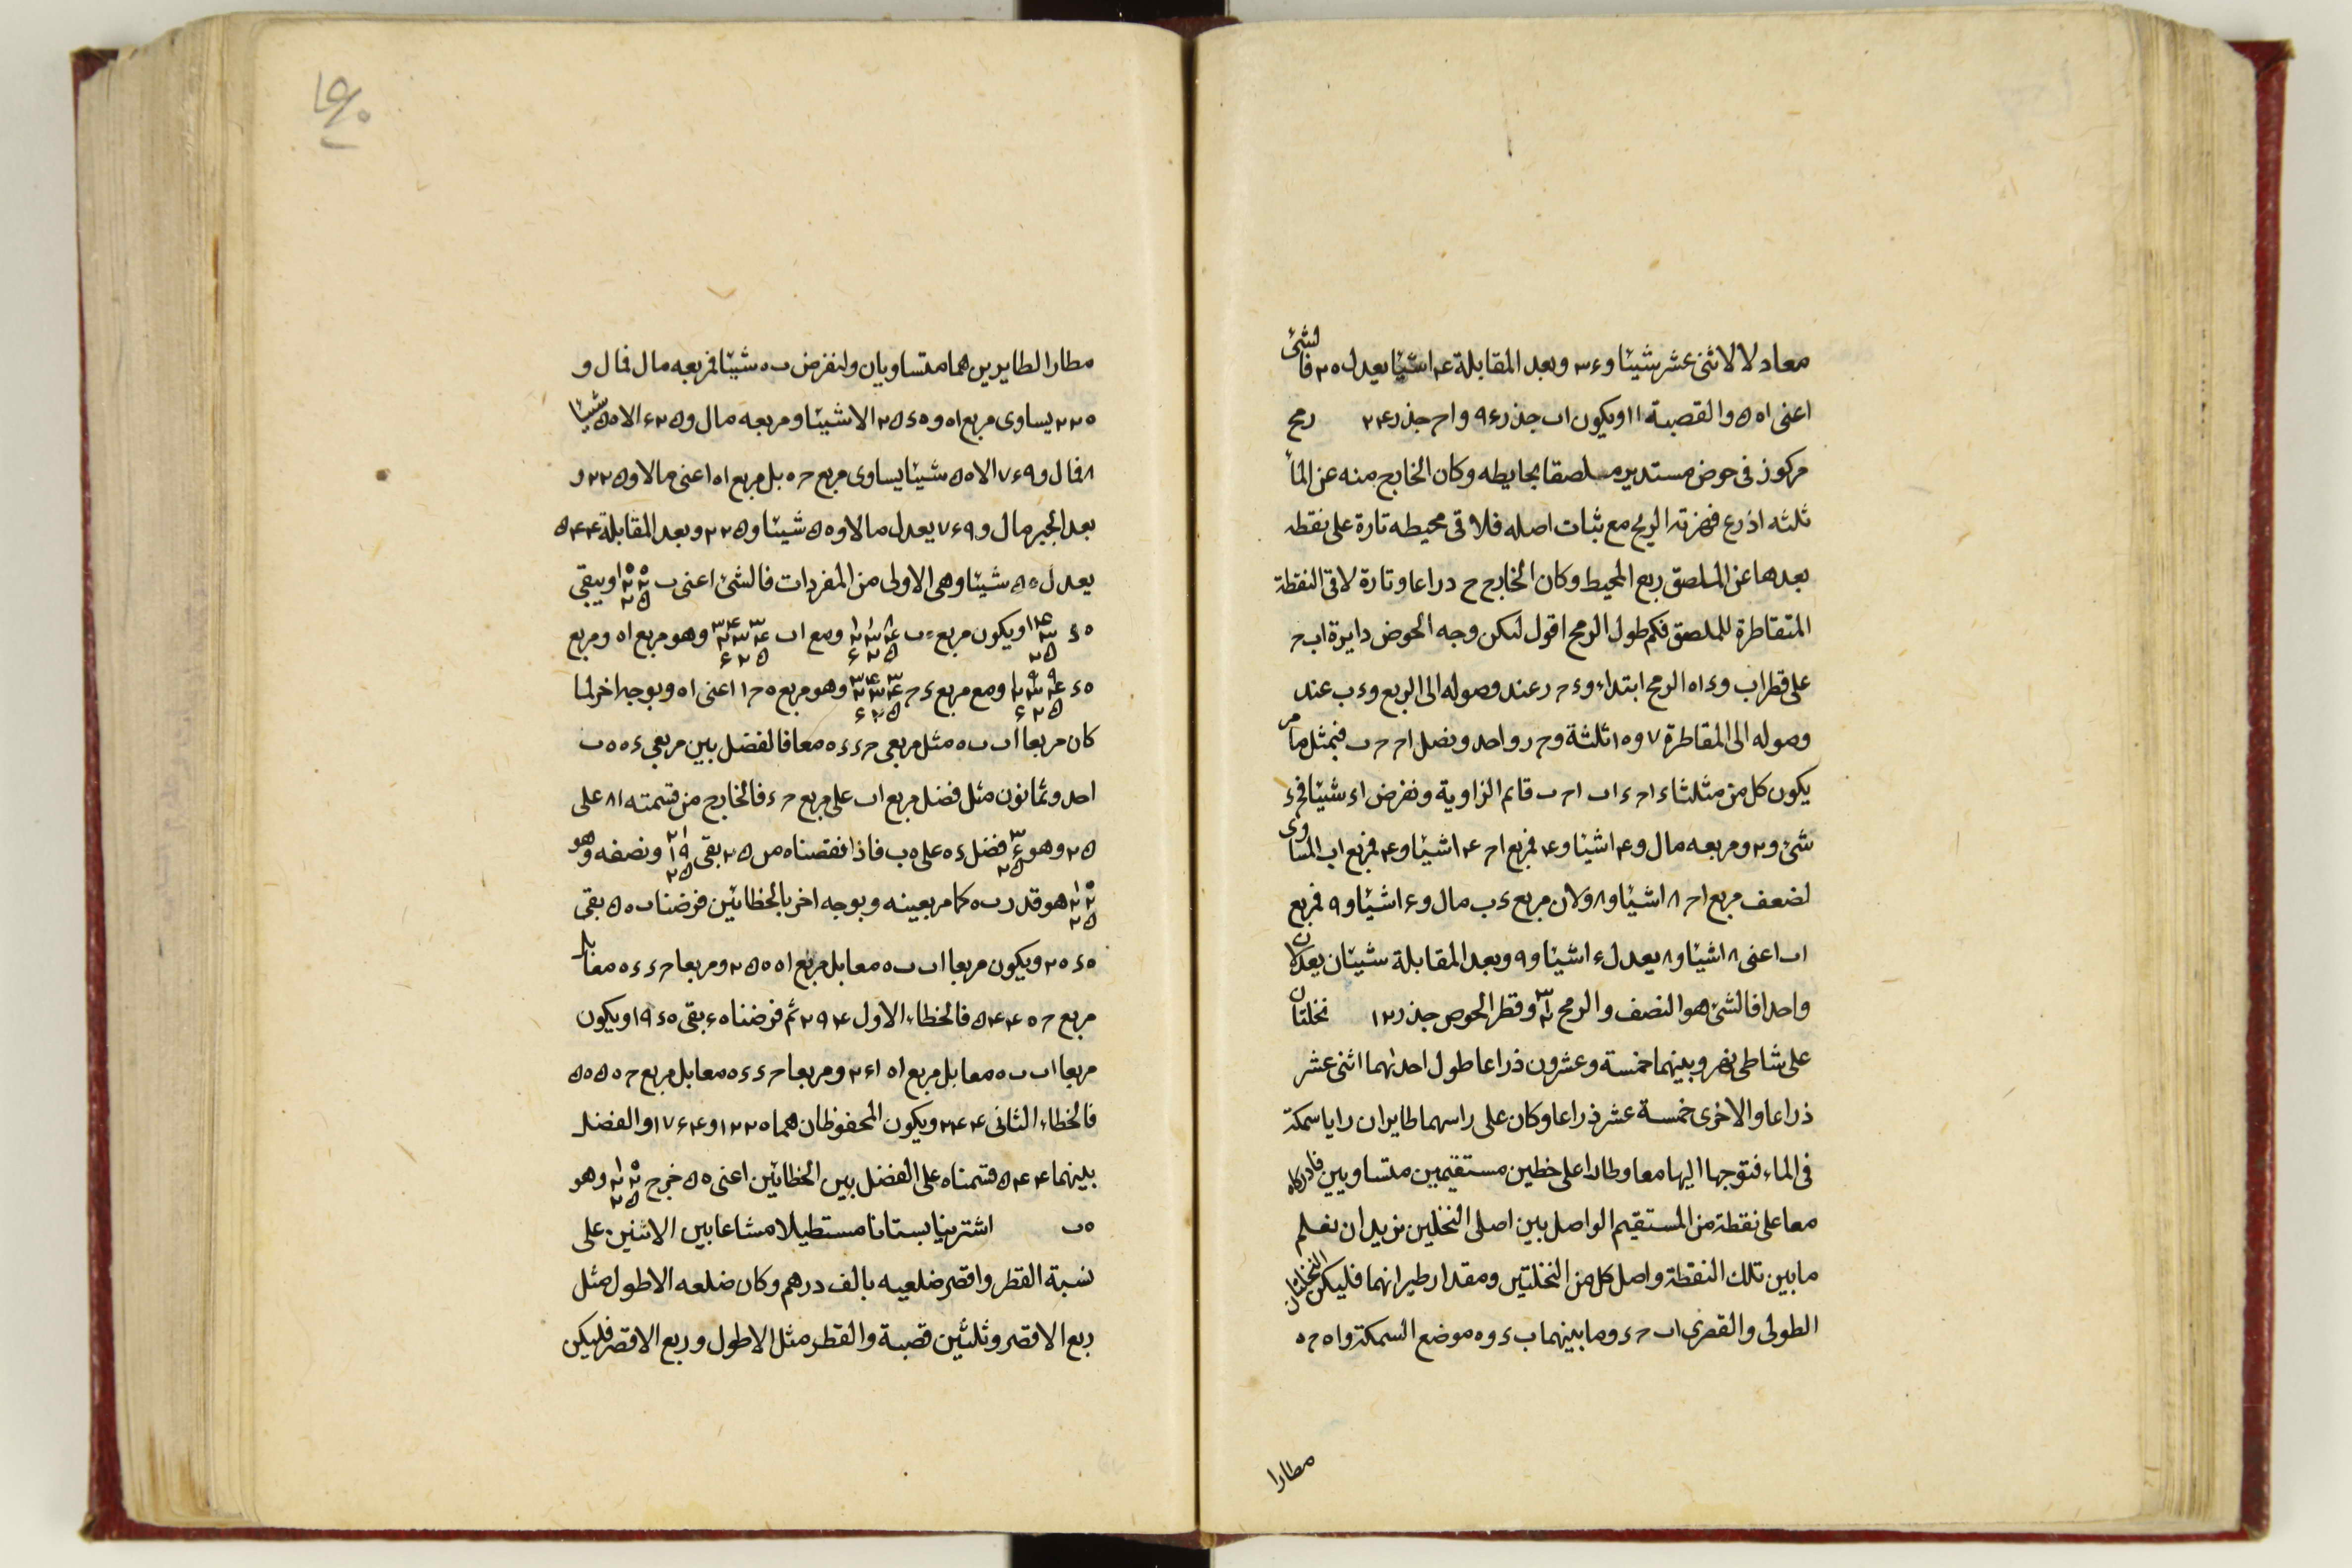 معادلا لاثنى عشر شيئا و٣٤ وبعد المقابلة ١٤ شيئا يعدل ٣٥ فالشئ
اعنى ا٥ ٥ والقصبة ١١ ويكون اب جذر ٩٤ واح جذر ٢٤ رمح
مركوز فى حوض مستدير ملصقا بحايطه وكان الخارج منه عن الماء
ثلثه اذرع فهزته الريح مع ثبات اصله فلاقى محيطه تارة على نقطه
بعدها عن الملصق ربع المحيط وكان الخارج ح ذراعا وتارة لاقى النقطة
المتقاطرة للملصق فكم طول الرمح اقول لكن وجه الحوض دايرة اب ح
على قطر اب وء ا٥ الرمح ابتداء وء ح ر عند وصوله الى الربع وء ب عند
وصوله الى المقاطرة و٥ا ثلثة وح ر واحد ونصل اح ح ب فبمثل ما مر
يكون كل من مثلثاء اح ء اب اح ب قايم الزاوية ونفرض اء شيئا فح ء
شئ و٢ ومربعه مال و٤ اشيئا و٤ فمربع اح ٤ اشيئا و٤ فمربع اب المساوى
لضعف مربع اح ٨ اشيئا و٨ ولان مربع ء ب مال و٦ اشيئا و٩ فمربع
اب اعنى ٨ اشيئا و٨ يعدل ٦ اشيئا و٩ وبعد المقابلة شيئان يعدلان
واحدا فالشئ هو النصف والرمح وقطر الحوض جذر ١٢ نخلتان
على شاطى نهر وبينهما خمسة وعشرون ذراعا طول احدىهما اثنى عشر
ذراعا والاخرى خمسة عشر ذراعا وكان على راسهما طايران رايا سمكة
فى الماء فتوجها اليها معا وطارا على خطين مستقيمين متساويين فادركاه
معا على نقطة من المستقيم الواصل بين اصلى النخلين نريد ان نعلم
ما بين تلك النقطة واصل كل من النخلتين ومقدار طيرانهما فليكن النخلتان
الطولى والقصرى اب ح ء وما بينهما ب ء و٥ موضع السمكة وا٥ ح ٥
مطارا
مطارا الطايرين هما متساويان ولنفرض ب٥ شيئا فمربعه مال فمال و
٢٢٥ يساوى مربع ا٥ و٥ء ٢٥ الا شيئا ومربعه مال و٦٢٥ الا ٥٠ شيئا
فمال و٧٦٩ الا ٥٠ شيئا يساوى مربع ح٥ بل مربع ا٥ اعنى مالا و٢٢٥ و
بعد الجبر مال و٧٦٩ يعدل مالا و٥٠ شيئا و٢٢٥ وبعد المقابلة ٥٤٤
يعدل ٥٠ شيئا وهى الاولى من المفردات فالشئ اعنى ب٥ ويبقى
٥ء ويكون مربع ٥ب ومع اب وهو مربع ا٥ ومربع
٥ء ومع مربع ء ح وهو مربع ٥ح اعنى ا٥ وبوجه اخر لما
كان مربعا اب ب٥ مثل مربعى ح ء ء٥ معا فالفضل بين مربعى ء٥ ٥ب
احد وثمانون مثل فضل مربع اب على مربع ح ء فالخارج من قسمته ٨١ على
٢٥ وهو فضل ء٥ على ٥ب فاذا نقصناه من ٢٥ بقى ونصفه وهو
هو قدر ب٥ كما مر بعينه وبوجه اخر بالخطائين فرضنا ب٥ ٥ بقى
٥ء ٢٠ ويكون مربعا اب ب٥ معا بل مربع ا٥ ٢٥٠ ومربعا ح ء ء٥ معا بل
مربع ح٥ ٥٤٤ فالخطاء الاول ٢٩٤ ثم فرضناه ٦ بقى ٥ء ١٩ ويكون
مربعا اب ب٥ معا بل مربع ا٥ ٢٦١ ومربعا ح ء ء٥ معا بل مربع ح٥ ٥٠٥
فالخطاء الثانى ٢٤٤ ويكون المحفوظان هما ١٢٢٠ و١٧٦٤ والفضل
بينهما ٥٤٤ قسمناه على الفضل بين الخطائين اعنى ٥٠ خرج وهو
٥ب اشترينا بستانا مستطيلا مشاعا بين الاثنين على
نسبة القطر واقصر ضلعيه بالف درهم وكان ضلعه الاطول مثل
ربع الاقصر وثلثين قصبة والقطر مثل الاطول وربع الاقصر فليكن